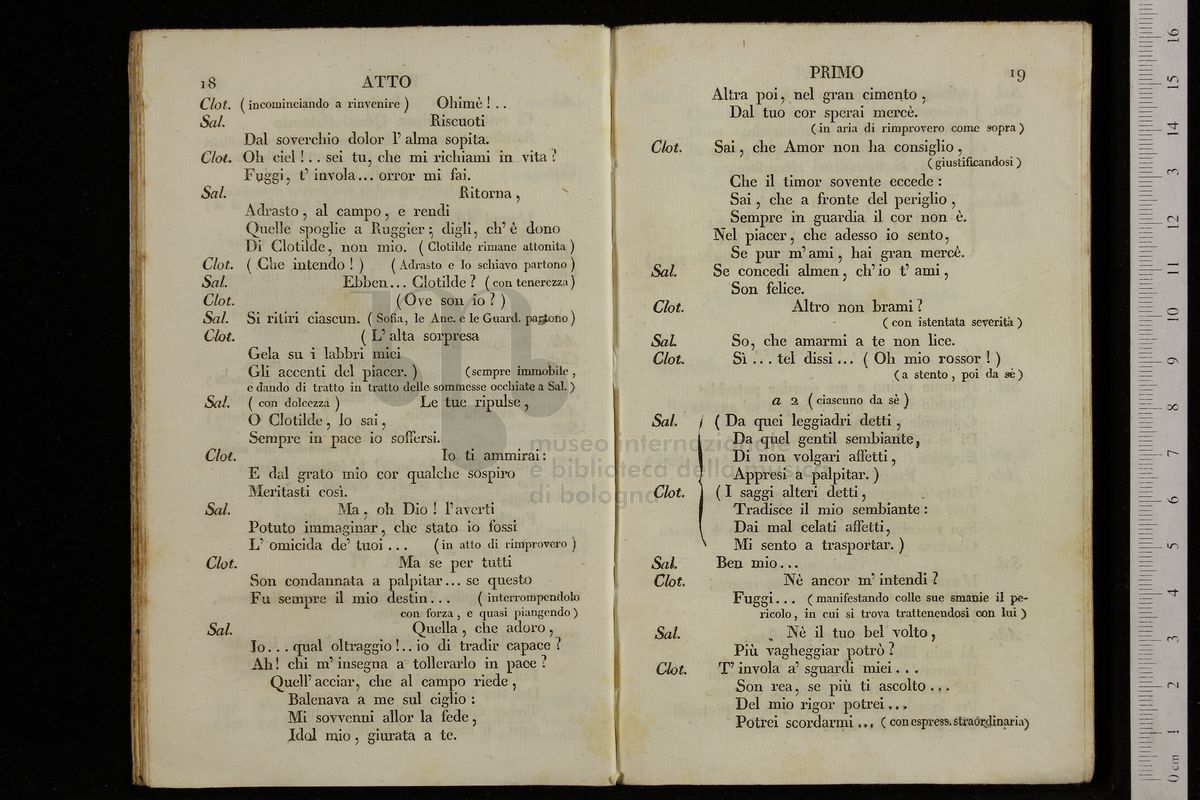 18 ATTO
Clot. ( incominciando a rinvenire ) Ohimè ! . .
Sal. Riscuoti
Dal soverchio dolor l' alma sopita.
Clot. Oh ciel ! . . sei tu, che mi richiami in vita ?
Fuggi, t' invola... orror mi fai.
Sal. Ritorna ,
Adrasto , al campo , e rendi
Quelle spoglie a Ruggier ; digli, ch' è dono
Di Clotilde, non mio. ( Clotilde rimane attonita )
Clot. ( Che intendo ! ) ( Adrasto e lo schiavo partono )
Sal. Ebben... Clotilde ? ( con tenerezza )
Clot. ( Ove son io ? )
Sal. Si ritiri ciascun. ( Sofia, le Anc. e le Guard. partono )
Clot. ( L' alta sorpresa
Gela su i labbri miei
Gli accenti del piacer. ) ( sempre immobile ,
e dando di tratto in tratto delle sommesse occhiate a Sal. )
Sal. ( con dolcezza ) Le tue ripulse ,
O Clotilde , lo sai ,
Sempre in pace io soffersi.
Clot. Io ti ammirai :
E dal grato mio cor qualche sospiro
Meritasti così.
Sal. Ma , oh Dio ! l'averti
Potuto immaginar , che stato io fossi
L' omicida de' tuoi . . . ( in atto di rimprovero )
Clot. Ma se per tutti
Son condannata a palpitar... se questo
Fu sempre il mio destin. . . ( interrompendolo
con forza , e quasi piangendo )
Sal. Quella , che adoro ,
Io. . . qual oltraggio !.. io di tradir capace ?
Ah ! chi m' insegna a tollerarlo in pace ?
Quell' acciar, che al campo riede ,
Balenava a me sul ciglio :
Mi sovvenni allor la fede ,
Idol mio , giurata a te.
PRIMO 19
Altra poi, nel gran cimento ,
Dal tuo cor sperai mercè.
( in aria di rimprovero come sopra )
Clot. Sai , che Amor non ha consiglio ,
( giustificandosi )
Che il timor sovente eccede :
Sai , che a fronte del periglio ,
Sempre in guardia il cor non è.
Nel piacer , che adesso io sento,
Se pur m' ami , hai gran mercè.
Sal. Se concedi almen , ch' io t' ami ,
Son felice.
Clot. Altro non brami ?
( con istentata severità )
Sal. So, che amarmi a te non lice.
Clot. Sì . . . tel dissi . . . ( Oh mio rossor ! )
( a stento , poi da sè )
a 2 ( ciascuno da sè )
Sal. ( Da quei leggiadri detti ,
Da quel gentil sembiante ,
Di non volgari affetti ,
Appresi a palpitar. )
Clot. ( I saggi alteri detti ,
Tradisce il mio sembiante :
Dai mal celati affetti,
Mi sento a trasportar. )
Sal. Ben mio. . .
Clot. Nè ancor m' intendi ?
Fuggi. . . ( manifestando colle sue smanie il pe-
ricolo , in cui si trova trattenendosi con lui )
Sal. Nè il tuo bel volto ,
Più vagheggiar potrò ?
Clot. T' invola a' sguardi miei . . .
Son rea, se più ti ascolto . . .
Del mio rigor potrei . . .
Potrei scordarmi . . . ( con espress. straordinaria )
museo internazionale
e biblioteca della musica
di bologna
0 cm 1 2 3 4 5 6 7 8 9 10 11 12 13 14 15 16